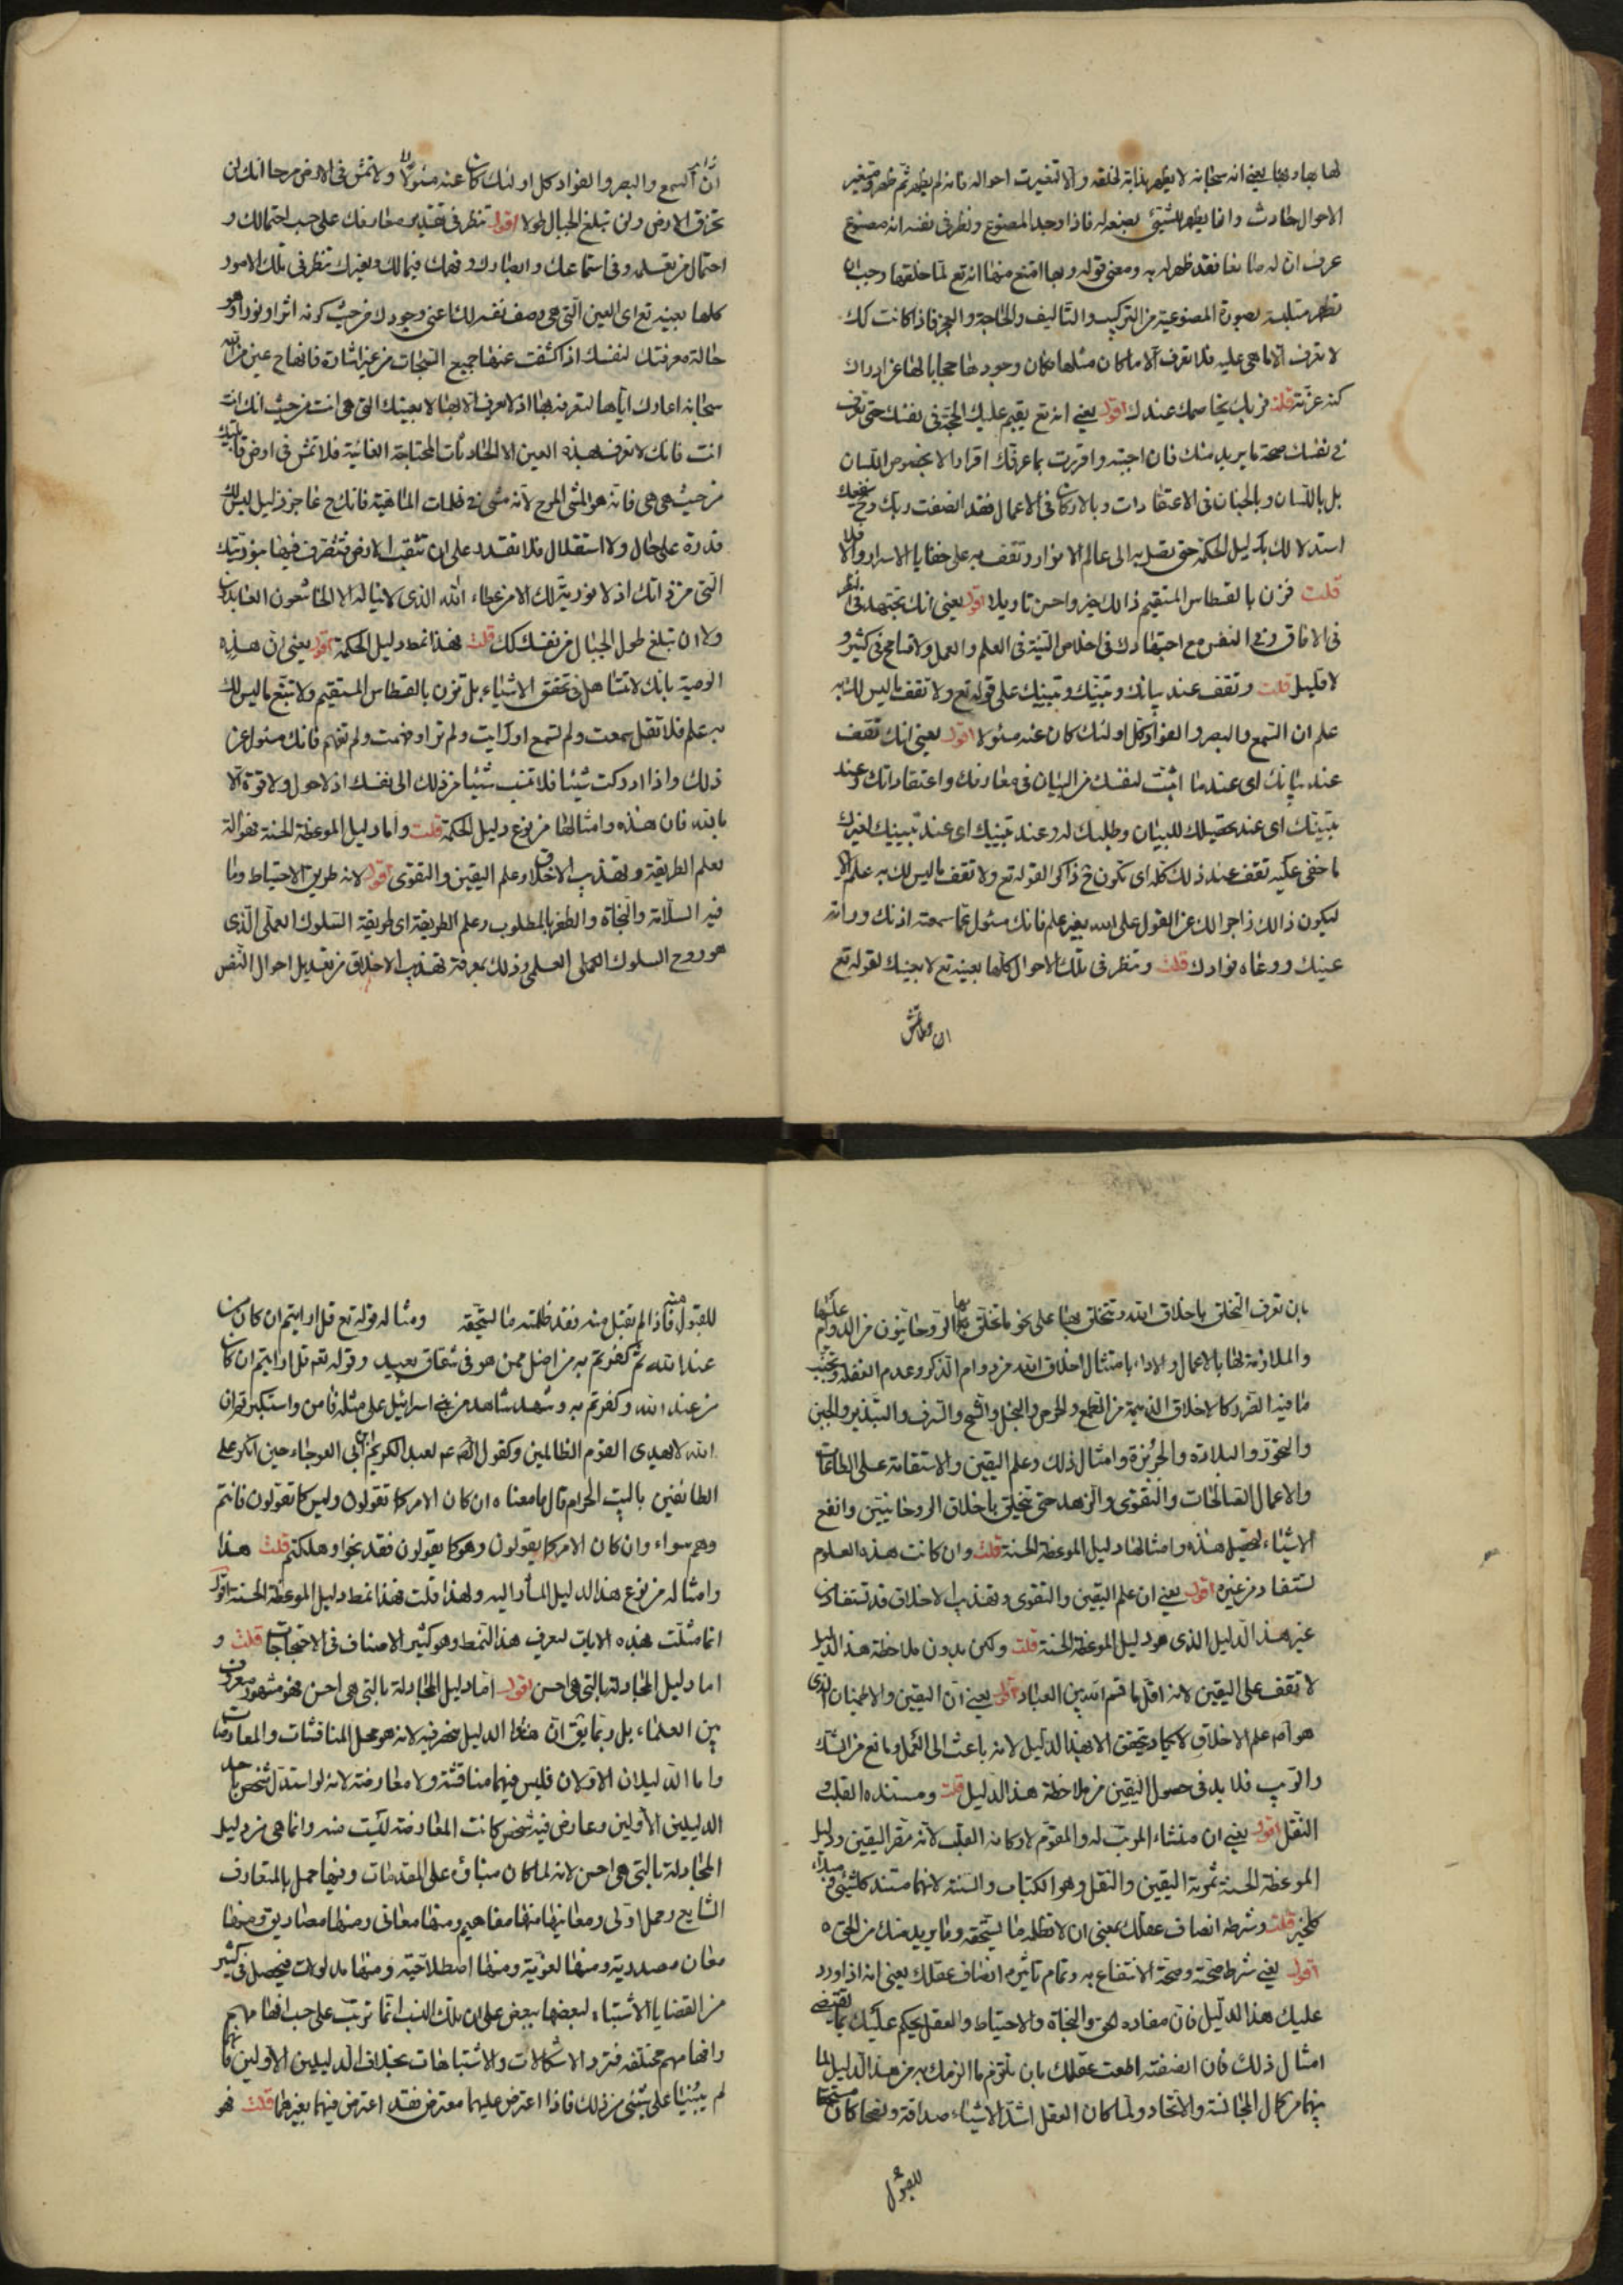 لها بها وبها يعني انه سبحانه لا يظهر بذاته لخلقه والا لتغيرت احواله فانه لم يظهر ثم ظهر ومتغير
الاحوال حادث وانما يظهر للشيئ بصنعه له فاذا وجد المصنوع ونظر في نفسه انه مصنوع
عرف ان له صانعا فقد ظهر له به ومعنى قوله وبها امتنع منها انه تع لما خلقها وجب ان
تظهر متلبسة بصورة المصنوعية من التركيب والتاليف والحاجة والعجز فاذا كانت كك
لا تعرف الا ما هي عليه فلا تعرف الا ما كان مثلها فكان وجودها حجابا لها عن ادراك
كنه عزته قلت فربك يخاصمك عندك اقول يعني انه تع يقيم عليك الحجة في نفسك حتى تعرف
في نفسك صحة ما يريد منك فان اجبته واقررت بما عرفك اقرارا لا بخصوص اللسان
بل باللسان وبالجنان في الاعتقادات وبالاركان في الاعمال فقد انصفت ربك وح
استدلالك بدليل الحكمة حتى تصل به الى عالم الانوار وتقف به على خفايا الاسرار والا فلا
قلت فزن بالقسطاس المستقيم ذالك خير واحسن تاويلا اقول يعني انك تجتهد في النظر
في الافاق وفي انفس مع اجتهادك في اخلاص النية في العلم والعمل ولا تسامح في كثير و
لا قليل قلت وتقف عند بيانك وتبينك وتبيينك على قوله تع ولا تقف ما ليس لك به
علم ان السمع والبصر والفؤاد كل اولئك كان عنه مسئولا اقول يعني انك تقف
عند بيانك اي عند ما اثبت لنفسك من البيان في معارفك واعتقاداتك وعند
تبينك اي عند تحصيلك للبيان وطلبك له وعند تبيينك اي عند تبيينك لغيرك
ما خفي عليه تقف عند ذلك كله اي تكون ح ذاكرا لقوله تع ولا تقف ما ليس لك به علم الاية
ليكون ذالك زاجرا لك عن القول على الله بغير علم فانك مسئول عما سمعته اذنك وراته
عينك ووعاه فوادك قلت وتنظر في تلك الاحوال كلها بعينه تع لا بعينك لقوله تع
ان السمع والبصر والفؤاد كل اولئك كان عنه مسئولا ولا تمش في الارض مرحا انك لن
تخرق الارض ولن تبلغ الجبال طولا اقول تنظر في تقدير معارفك على حسب احتمالك و
احتمال من تعلمه وفي استماعك وابصارك وفهمك فيما لك ولغيرك تنظر في تلك الامور
كلها بعينه تع اي العين التي هي وصف نفسه لك اعني وجودك من حيث كونه اثرا ونورا وهو
حالة معرفتك لنفسك اذا كشفت عنها جميع السبحات من غير اشارة فانها ح عين من الله
سبحانه اعارك اياها لتعرفه بها اذ لا يعرف الا بها لا بعينك التي هي انت من حيث انك انت
انت فانك لا تعرف بهذه العين الا الحادثات المحتاجة الفانية فلا تمش في ارض قابليتك
من حيث هي هي فانه هو المشي المرح لانه مشي في ظلمات الماهية فانك ح عاجز ذليل ليس لك
قدرة على حال ولا استقلال فلا تقدر على ان تثقب الارض فتتصرف فيها بنوريتك
التي من ذاتك اذ لا نورية لك الا من عطاء الله الذي لا يناله الا الخاشعون العابدون
ولا ان تبلغ طول الجبال من نفسك كك قلت فهذا نمط دليل الحكمة اقول يعني ان هذه
الوصية بانك لا تتساهل في تحقق الاشياء بل تزن بالقسطاس المستقيم ولا تتبع ما ليس لك
به علم فلا تقل سمعت ولم تسمع او رايت ولم تر او فهمت ولم تفهم فانك مسئول عن
ذلك واذا ادركت شيئا فلا تنسب شيئا من ذلك الى نفسك اذ لا حول ولا قوة الا
بالله فان هذه وامثالها من نوع دليل الحكمة قلت واما دليل الموعظة الحسنة فهو الة
لعلم الطريقة وتهذيب الاخلاق وعلم اليقين والتقوى اقول لانه طريق الاحتياط وما
فيه السلامة والنجاة والظفر بالمطلوب وعلم الطريقة اي طريقة السلوك العملي الذي
هو روح السلوك العملي العلمي وذلك بمعرفة تهذيب الاخلاق من تعديل احوال النفس
بان تعرف التخلق باخلاق الله وتتخلق بها على نحو ما تخلق بها الروحانيون من الدوام عليها
والملازمة لها بالاعمال والاداب بامتثال اخلاق الله من دوام الذكر وعدم الغفلة وتجنب
ما فيه الضرر كالاخلاق الذميمة من الطمع والحرص والبخل والشح والسرف والتبذير والجبن
والتهور والبلادة والجربزة وامثال ذلك وعلم اليقين والاستقامة على الطاعات
والاعمال الصالحات والتقوى والزهد حتى تتخلق باخلاق الروحانيين وانفع
الاشياء لتحصيل هذه وامثالها دليل الموعظة الحسنة قلت وان كانت هذه العلوم
تستفاد من غيره اقول يعني ان علم اليقين والتقوى وتهذيب الاخلاق قد تستفاد من
غير هذا الدليل الذي هو دليل الموعظة الحسنة قلت ولكن بدون ملاحظة هذا الدليل
لا تقف على اليقين لانه اقل ما قسم الله بين العباد اقول يعني ان اليقين والاطمينان الذي
هو ام علم الاخلاق لا يكاد يتحقق الا بهذا الدليل لانه باعث الى العمل ومانع من الشك
والريب فلا بد في حصول اليقين من ملاحظة هذا الدليل قلت ومستنده القلب و
النقل اقول يعني ان منشاء المرتب له والمقوم لاركانه القلب لانه مقر اليقين ودليل
الموعظة الحسنة ثمرته اليقين والنقل وهو الكتاب والسنة لانهما مستند كل شيئ ومبدء
كل خير قلت وشرطه انصاف عقلك بمعنى ان لا تظلمه ما يستحقه وما يريد منك من الحق
اقول يعني شرط صحته وصحة الانتفاع به وتمام تاثيره انصاف عقلك يعني انه اذا ورد
عليك هذا الدليل فان مفاده الحق والنجاة والاحتياط والعقل يحكم عليك بما يقتضي
امثال ذلك فان انصفته اطعت عقلك بان تلتزم ما الزمك به من هذا الدليل لما
بينهما من كمال المجانسة والاتحاد ولما كان العقل اشد الاشياء صداقة ونصحا كان مستحقا
للقبول منه فاذا لم تقبل منه فقد ظلمته ما يستحقه ومثاله قوله تع قل ارايتم ان كان من
عند الله ثم كفرتم به من اضل ممن هو في شقاق بعيد وقوله تع قل ارايتم ان كان
من عند الله وكفرتم به وشهد شاهد من بني اسرائيل على مثله فامن واستكبرتم ان
الله لا يهدي القوم الظالمين وكقول الصادق ع لعبد الكريم ابن ابي العوجاء حين انكر على
الطائفين بالبيت الحرام قال ما معناه ان كان الامر كما تقولون وليس كما تقولون فانتم
وهم سواء وان كان الامر كما يقولون وهو كما يقولون فقد نجوا وهلكتم قلت هذا
وامثاله من نوع هذا الدليل المشار اليه ولهذا قلت فهذا نمط دليل الموعظة الحسنة اقول
انما مثلت بهذه الايات لتعرف هذا النمط وهو كثير الاصناف في الاحتجاجات قلت و
اما دليل المجادلة بالتي هي احسن اقول اما دليل المجادلة بالتي هي احسن فهو مشهور معروف
بين العلماء بل ربما يق ان هذا الدليل منحصر فيه لانه هو محل المناقشات والمعارضات
واما الدليلان الاولان فليس فيهما مناقشة ولا معارضة لانه لو استدل شخص باحد
الدليلين الاولين وعارض فيه شخص كانت المعارضة ليست منه وانما هي من دليل
المجادلة بالتي هي احسن لانه لما كان مبناه على المقدمات وفيها حمل بالمتعارف
الشايع وحمل اولى ومعانيها منها مفاهيم ومنها معاني ومنها مصاديق ومنها
معان مصدرية ومنها لغوية ومنها اصطلاحية ومنها مدلولات فيحصل في كثير
من القضايا الاشتباه لبعضها ببعض على ان تلك النسب انما ترتب على حسب افهامهم
وافهامهم مختلفة فترد الاشكالات والاشتباهات بخلاف الدليلين الاولين فانهما
لم يبنيا على شيئ من ذلك فاذا اعترض عليهما معترض فقد اعترض فيهما بغيرهما قلت فهو
للقبول